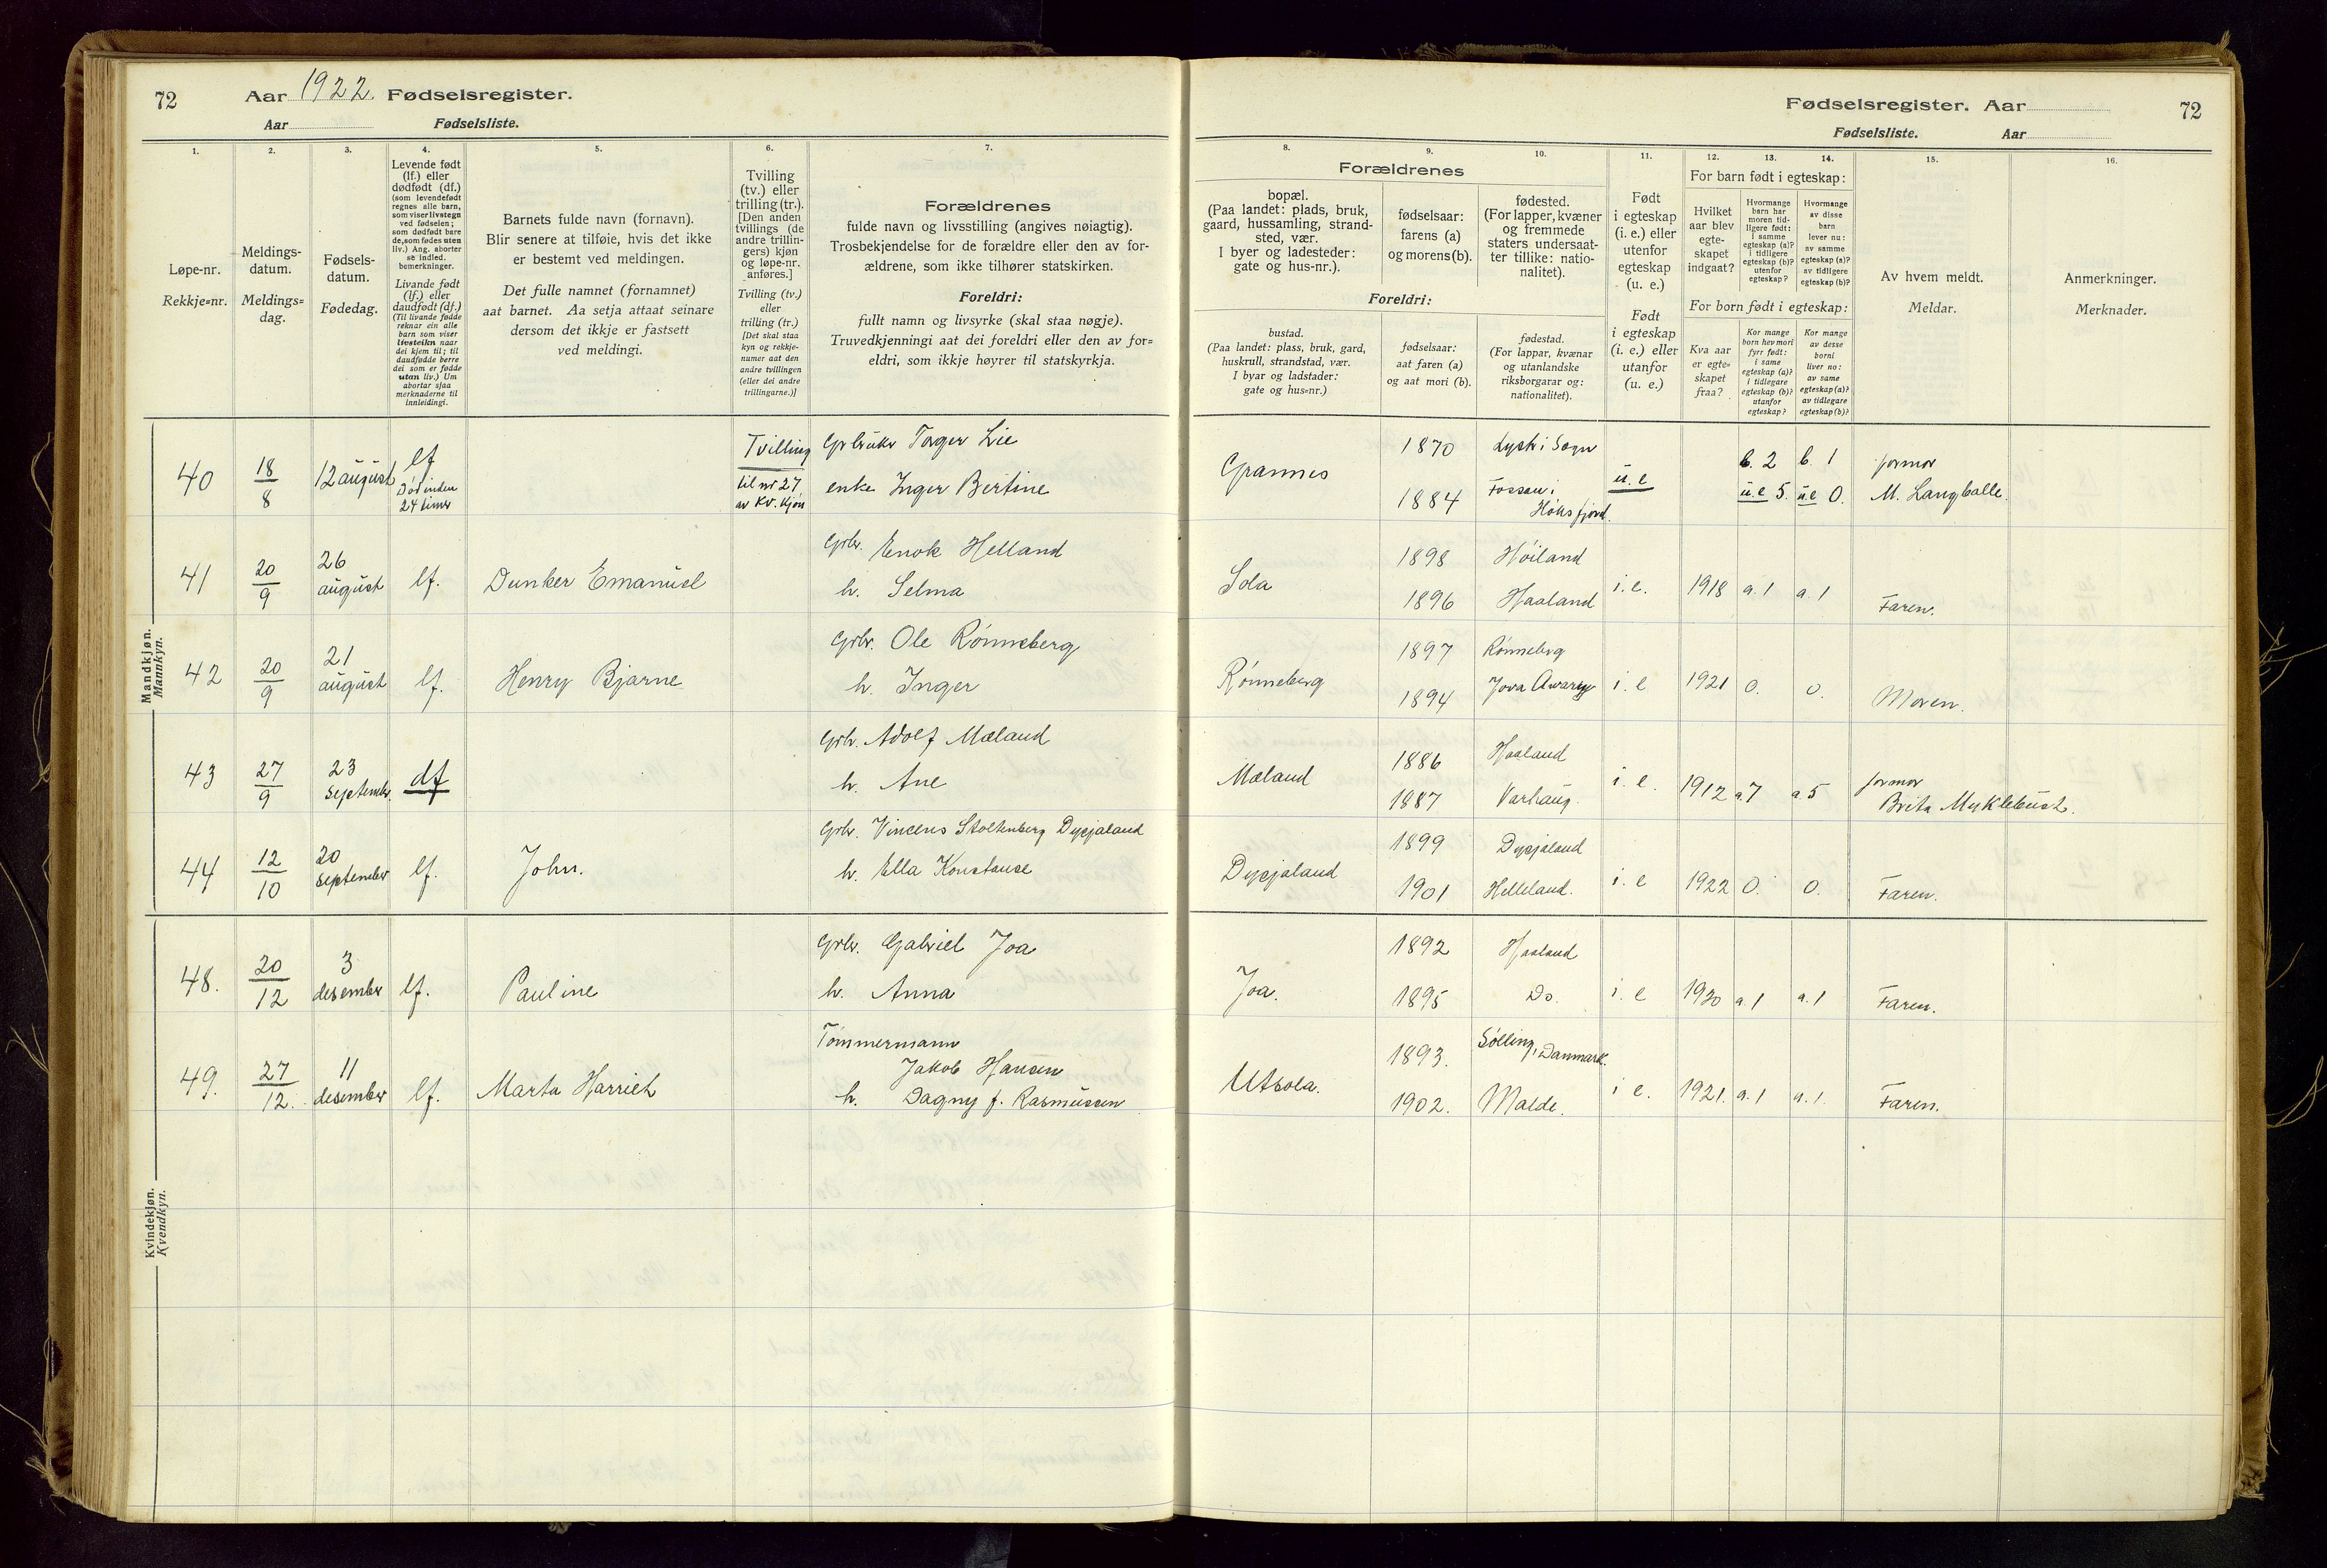 72
Aar 1922. Fødselsregister.
Aar Fødselsliste.
1.
2.
3.
4.
5.
6.
7.
Løpe-nr.
Rekkje=nr.
Meldings-
datum.
Meldings=
dag.
Fødsels-
datum.
Fødedag.
Levende født
(lf.) eller
dødfødt (df.)
(som levendefødt
regnes alle barn,
som viser livstegn
ved fødselen;
som dødfødt bare
de, som fødes uten
liv.) Ang. aborter
se indled.
bemerkninger.
Livande født
(lf.) eller
daudfødt (df.)
(Til livande fødde
reknar ein alle
barn som viser
livsteikn naar
dei kjem til; til
daudfødde berre
dei som er fødde
utan liv.) Um
abortar sjaa
merknaderne til
innleidingi.
Barnets fulde navn (fornavn).
Blir senere at tilføie, hvis det ikke
er bestemt ved meldingen.
Det fulle namnet (fornamnet)
aat barnet. Aa setja attaat seinare
dersom det ikkje er fastsett
ved meldingi.
Tvilling
(tv.) eller
trilling (tr.).
[Den anden
tvillings (de
andre trillin-
gers) kjøn
og løpe-nr.
anføres.]
Tvilling (tv.)
eller
trilling (tr.)
[Det skal staa
kyn og rekkje-
numer aat den
andre tvillingen
(eller dei andre
trillingarne.)]
Forældrenes
fulde navn og livsstilling (angives nøiagtig).
Trosbekjendelse for de forældre eller den av for-
ældrene, som ikke tilhører statskirken.
Foreldri:
fullt namn og livsyrke (skal staa nøgje).
Truvedkjenningi aat dei foreldri eller den av for=
eldri, som ikkje høyrer til statskyrkja.
Mandkjøn.
Mannkyn.
40 18/8 12 august lf
Død inden
24 timer
Tvilling
til nr 27
av kv. kjøn
Grbruker Torger Lie
enke Inger Bertine
41 20/9 26 august lf. Dunker Emanuel
Grbr. Enok Helland
h. Selma
42 20/9 21 august lf. Henry Bjarne
Grbr. Ole Rønneberg
h. Inger
43 27/9 23 september. df
Grbr. Adolf Mæland
h. Ane
44 12/10 20 september lf. John.
Grbr. Vincens Stoltenberg Dysjaland
h. Ella Konstanse
Kvindekjøn.
Kvendkyn.
48. 20/12 3 desember lf. Pauline
Grbr. Gabriel Joa
h. Anna
49. 27/12. 11 desember lf. Marta Harriet
Tømmermann
Jakob Hansen
h. Dagny f. Rasmussen
Fødselsregister. Aar
72
Fødselsliste. Aar
8.
9.
10.
11.
12.
13.
14.
15.
16.
Forældrenes
bopæl.
(Paa landet: plads, bruk,
gaard, hussamling, strand-
sted, vær.
I byer og ladesteder:
gate og hus-nr.).
fødselsaar:
farens (a)
og morens (b).
fødested.
(For lapper, kvæner
og fremmede
staters undersaat-
ter tillike: natio-
nalitet).
Foreldri:
bustad.
(Paa landet: plass, bruk, gard,
huskrull, strandstad, vær.
I byar og ladstader:
gate og hus=nr.)
fødselsaar:
aat faren (a)
og aat mori (b).
fødestad.
(For lappar, kvænar
og utanlandske
riksborgarar og:
nationalitet).
Født
i egteskap
(i. e.) eller
utenfor
egteskap
(u. e.)
Født
i egteskap
(i. e.) eller
utanfor
(u. e.)
For barn født i egteskap:
Hvilket
aar blev
egte-
skapet
indgaat?
Hvormange
barn har
moren tid-
ligere født:
i samme
egteskap (a)?
i tidligere
egteskap (b)?
utenfor
egteskap?
Hvormange
av disse
barn
lever nu:
av samme
egteskap (a)?
av tidligere
egteskap (b)?
For born født i egteskap:
Kva aar
er egte=
skapet
fraa?
Kor mange
born hev mori
fyrr født:
i same
egteskap (a)?
i tidlegare
egteskap (b)?
utanfor
egteskap?
Kor mange
av desse
borni
liver no:
av same
egteskap (a)?
av tidlegare
egteskap (b)?
Av hvem meldt.
Meldar.
Anmerkninger.
Merknader.
Grannes
1870 Lystr i Sogn
1884 Fossan i
Høksfjord.
u. e
b. 2 b. 1
u. e 5. u. e 0.
jormor
M. Langballe.
Sola
1898 Høiland
1896 Haaland
i. e. 1918 a. 1 a. 1 Faren.
Rønneberg
1897 Rønneberg
1894 Jora
i. e 1921 0. 0. Moren.
Mæland
1886 Haaland
1887 Varhaug.
i. e. 1912 a. 7 a. 5
jormor
Brita Myklebust.
Dysjaland
1899 Dysjaland
1901 Helleland.
i. e 1922 0. 0. Faren.
Joa.
1892 Haaland
1895 Do.
i. e 1920 a. 1 a. 1 Faren.
Utsola.
1893. Sølling, Danmark.
1902. Malde.
i e. 1921. a. 1 a. 1. Faren.